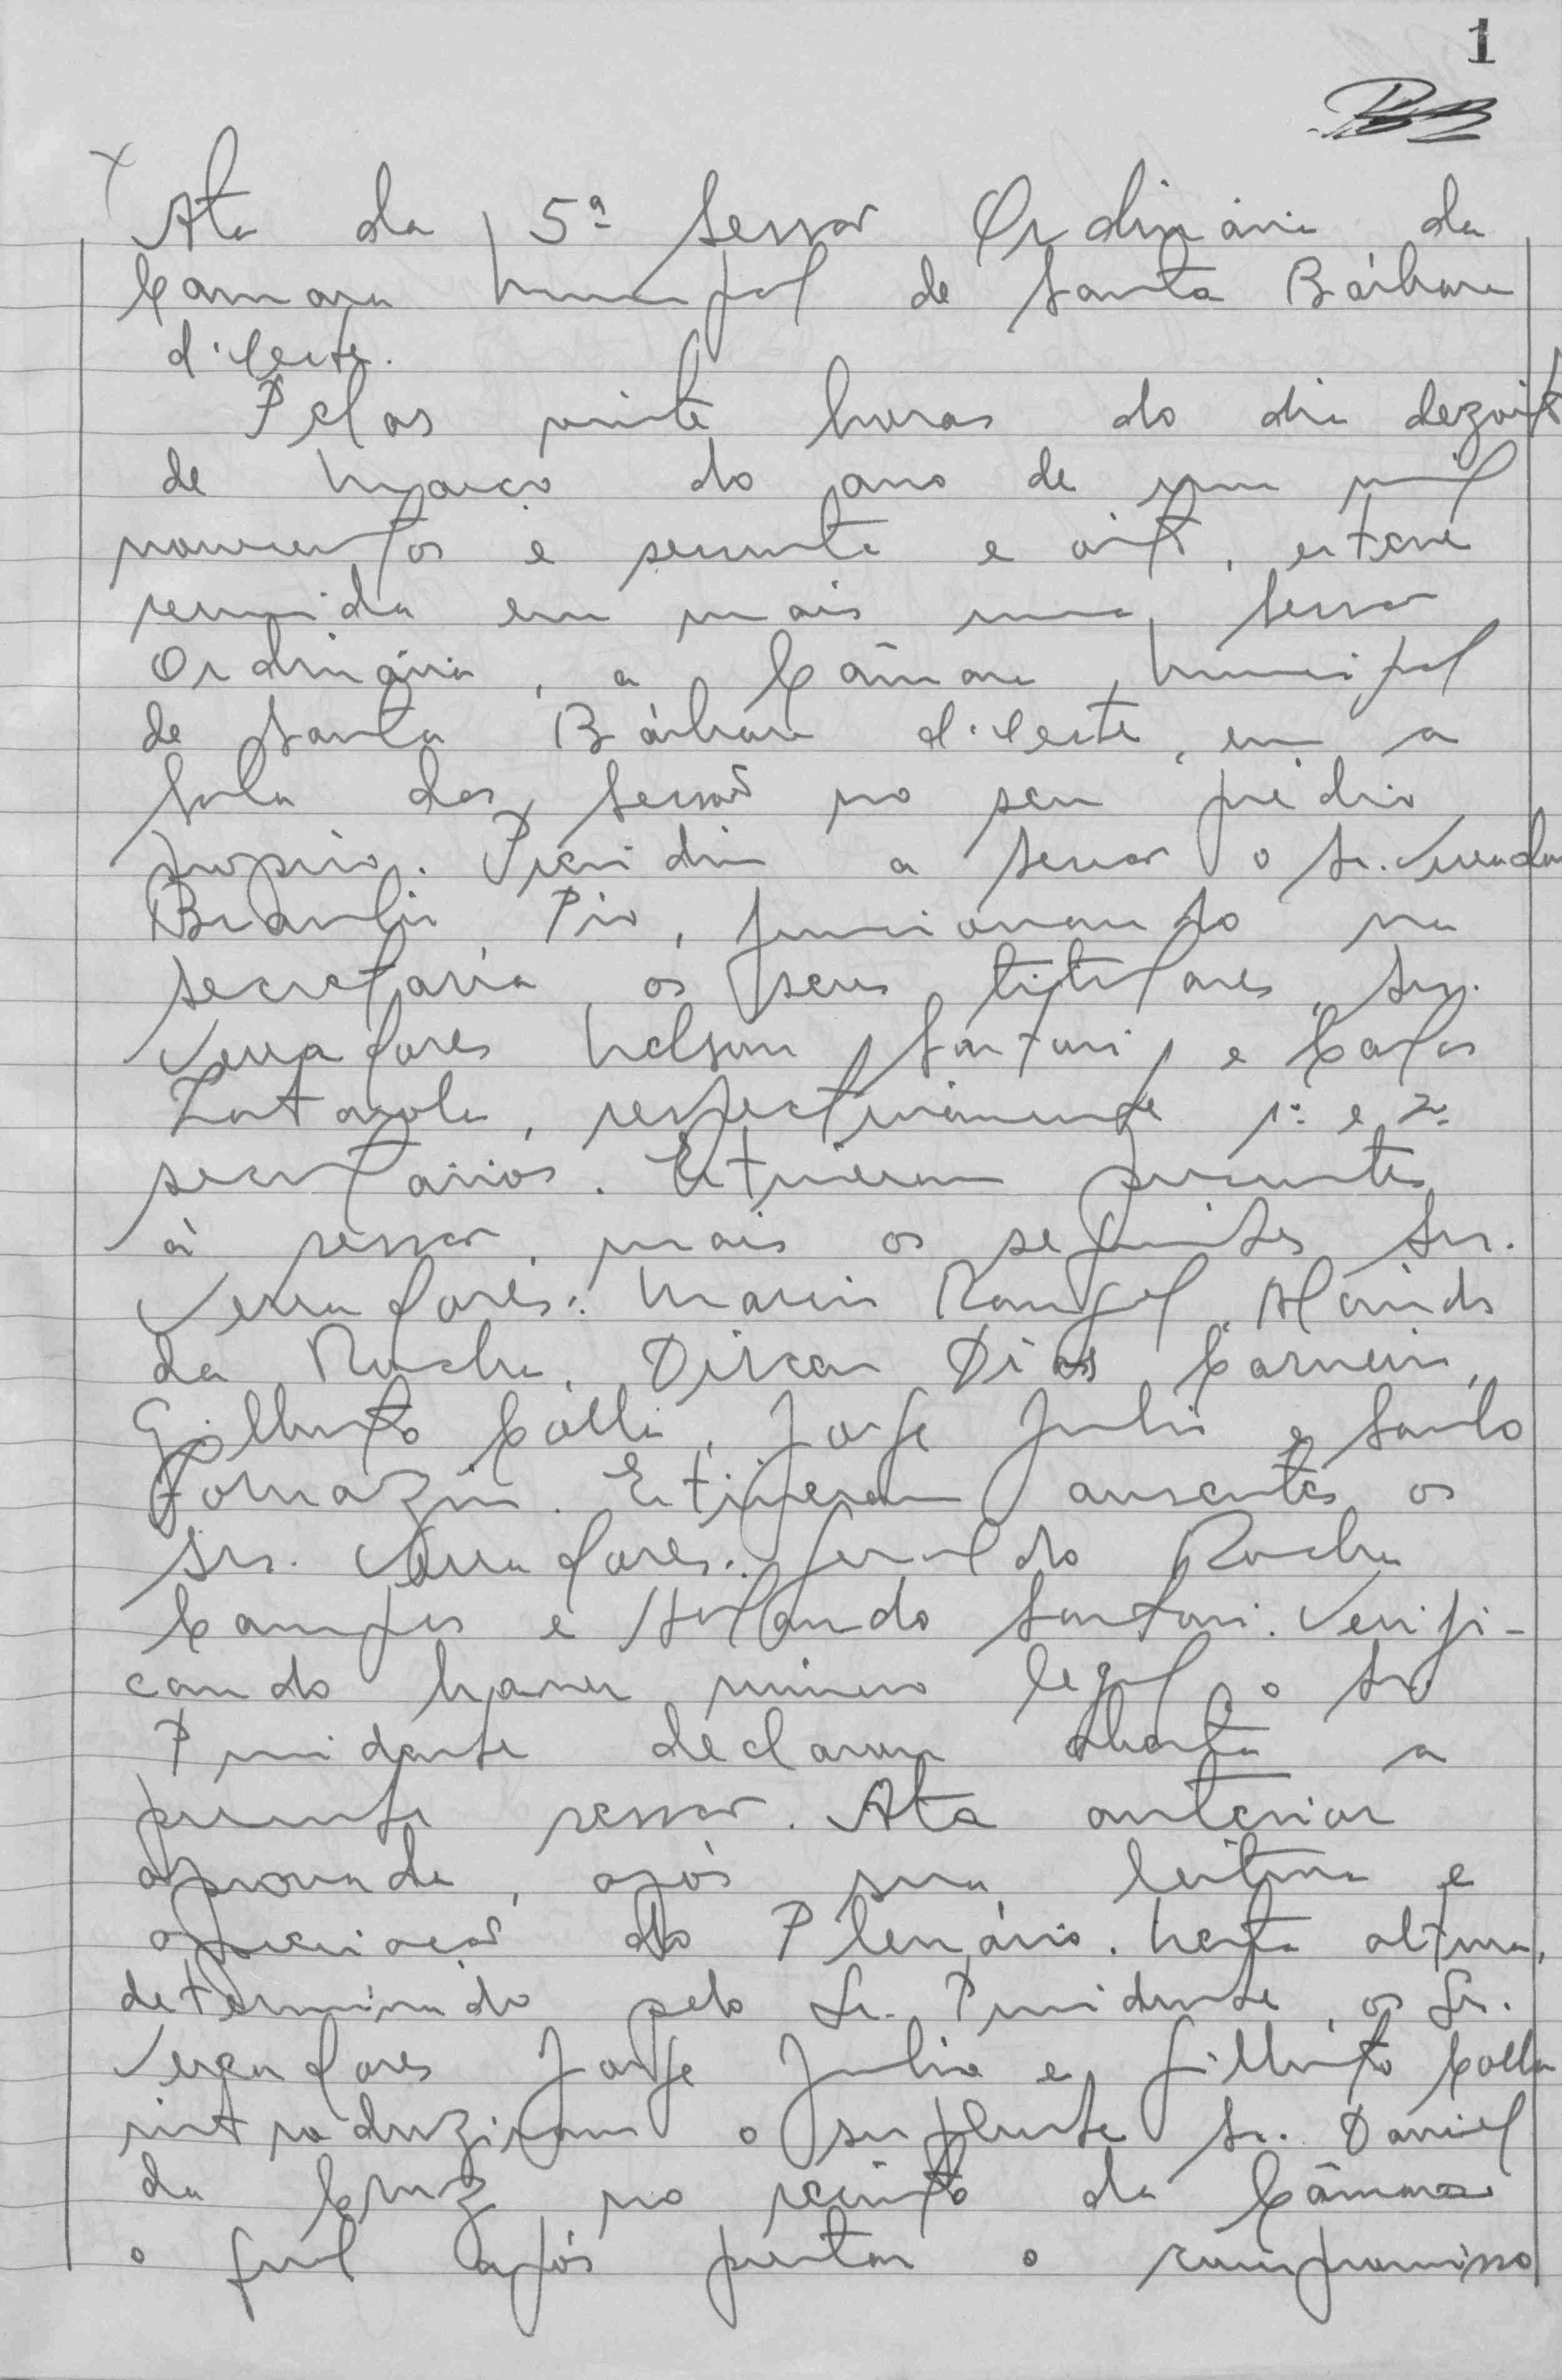 1
Ata da 5ª Sessão Ordinária da
Câmara Municipal de Santa Bárbara
d'Oeste.
Pelas vinte horas do dia dezoito
de Março do ano de um mil
novecentos e sessenta e oito, esteve
reunida em mais uma Sessão
Ordinária, a Câmara Municipal
de Santa Bárbara d'Oeste, em a
Sala das Sessões no seu prédio
próprio. Presidiu a Sessão o Sr. Vereador
Braulio Pio, funcionando na
secretaria os seus titulares, Srs.
Vereadores Nelson Santori e Carlos
respectivamente 1º e 2º
secretários. Estiveram presentes
à sessão, mais os seguintes Srs.
Vereadores: Mario Rangel, Alcindo
da Rocha, Dirceu Dias Carneiro,
Gilberto Colla, Jorge Julio e Santo
Tomazin. Estiveram ausentes os
Srs. Vereadores: Geraldo Rocha
Campos e Santori. Verifi-
cando haver número legal, o Sr.
Presidente declarou aberta a
presente sessão. Ata anterior
aprovada, após sua leitura e
apreciação do Plenário. Nesta altura,
determinado pelo Sr. Presidente, os Srs.
Vereadores Jorge Julio e Gilberto Colla
introduziram o suplente Sr. Daniel
da Cruz no recinto da Câmara
o qual após prestar o compromisso